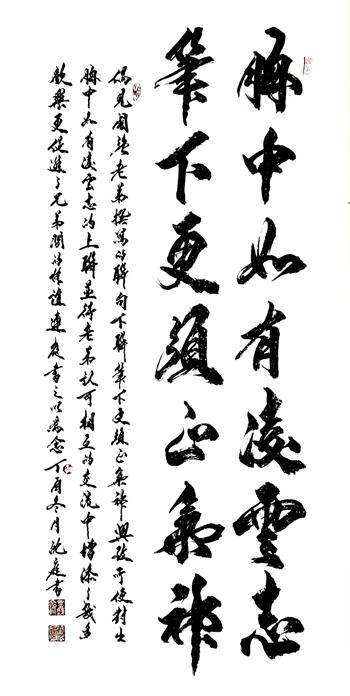 胸中如有凌雲志
筆下更須正氣神
偶見開放老弟撰寫的聯句下聯筆下更須正氣神興致所使對出
胸中如有凌雲志的上聯並得老弟認可相互的交流中增添了幾多
歡樂更促進了兄弟間的情誼連夜書之以為念丁酉冬月沈產書